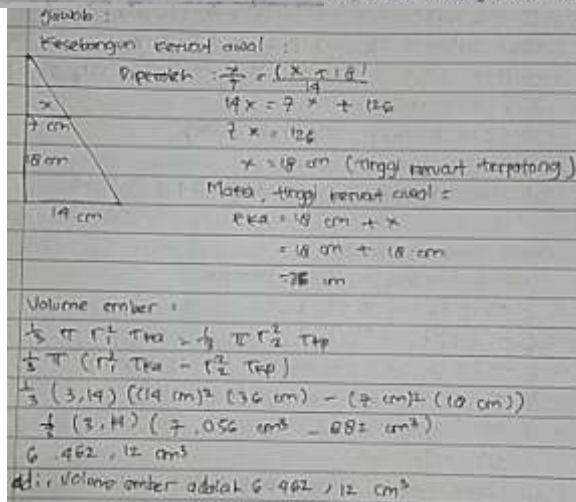 Jawab :
Kesebangun kerucut awal :
Diperoleh : x/7 = (x + 18)/14
x
14x = 7x + 126
7 cm
7x = 126
18 cm
x = 18 cm (tinggi kerucut terpotong)
Maka, tinggi kerucut awal =
14 cm
= 18 cm + x
= 18 cm + 18 cm
= 36 cm
Volume ember :
1/3 π r₁² Tka - 1/3 π r₂² Tkp
1/3 π (r₁² Tka - r₂² Tkp)
1/3 (3,14) ((14 cm)² (36 cm) - (7 cm)² (18 cm))
1/3 (3,14) (7.056 cm³ - 882 cm³)
6.462,12 cm³
adi, volume ember adalah 6.462,12 cm³